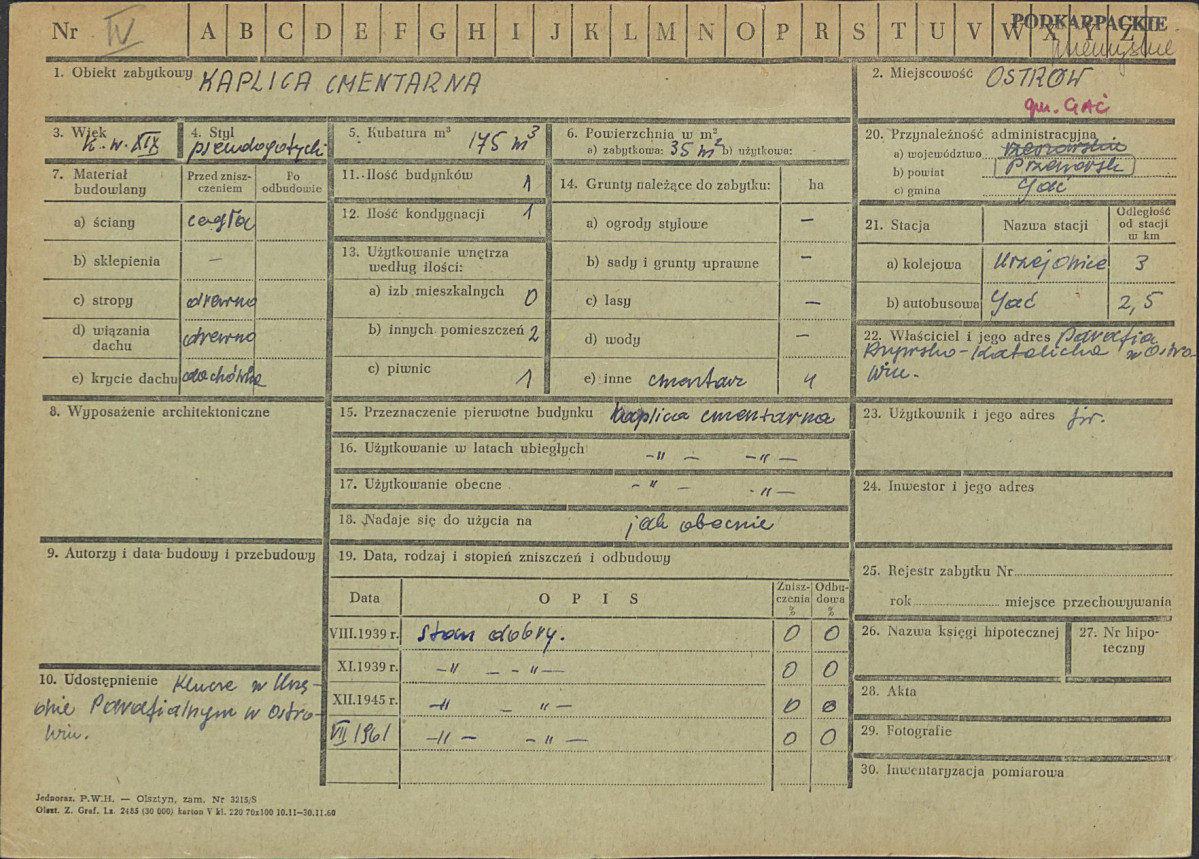 Nr IV A B C D E F G H I J K L M N O P R S T U V W X Y Z
PODKARPACKIE
1. Obiekt zabytkowy KAPLICA CMENTARNA
2. Miejscowość OSTRÓW
gm. GAĆ
3. Wiek k. w. XIX
4. Styl pseudogotycki
5. Kubatura m³ 175 m³
6. Powierzchnia w m²
a) zabytkowa: 35 m² b) użytkowa:
7. Materiał budowlany
Przed zniszczeniem
Po odbudowie
a) ściany cegła
b) sklepienia —
c) stropy drewno
d) wiązania dachu drewno
e) krycie dachu dachówka
11. Ilość budynków 1
12. Ilość kondygnacji 1
13. Użytkowanie wnętrza
według ilości:
a) izb mieszkalnych 0
b) innych pomieszczeń 2
c) piwnic 1
14. Grunty należące do zabytku: ha
a) ogrody stylowe —
b) sady i grunty uprawne —
c) lasy —
d) wody —
e) inne cmentarz 4
20. Przynależność administracyjna
a) województwo rzeszowskie
b) powiat Przeworsk
c) gmina Gać
21. Stacja Nazwa stacji Odległość od stacji w km
a) kolejowa Urzejowice 3
b) autobusowa Gać 2,5
22. Właściciel i jego adres Parafia
Rzymsko-Katolicka w Ostro-
wiu.
8. Wyposażenie architektoniczne
9. Autorzy i data budowy i przebudowy
10. Udostępnienie Klucze w Urzę-
dzie Parafialnym w Ostro-
wiu.
15. Przeznaczenie pierwotne budynku kaplica cmentarna
16. Użytkowanie w latach ubiegłych -„ — -„ —
17. Użytkowanie obecne -„ — -„ —
18. Nadaje się do użycia na jak obecnie
19. Data, rodzaj i stopień zniszczeń i odbudowy
Data O P I S Zniszczenia % Odbudowa %
VIII.1939 r. stan dobry. 0 0
XI.1939 r. -„ — -„ — 0 0
XII.1945 r. -„ - „ — 0 0
VII 1961 -„ — -„ — 0 0
23. Użytkownik i jego adres jw.
24. Inwestor i jego adres
25. Rejestr zabytku Nr
rok miejsce przechowywania
26. Nazwa księgi hipotecznej
27. Nr hipoteczny
28. Akta
29. Fotografie
30. Inwentaryzacja pomiarowa
Jednoraz. P.W.H. — Olsztyn, zam. Nr 3215/S
Olszt. Z. Graf. Lz. 2485 (30 000) karton V kl. 220 70x100 10.11—30.11.60